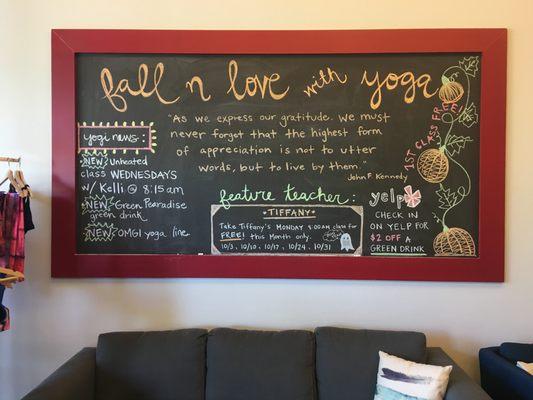 fall n love with yoga
"As we express our gratitude. We must
never forget that the highest form
of appreciation is not to utter
words, but to live by them."
John F. Kennedy
yogi news:
NEW Unheated
class WEDNESDAYS
w/ Kelli @ 8:15am
NEW Green Paradise
green drink
NEW OMG! yoga line
feature teacher:
TIFFANY
Take Tiffany's MONDAY 8:00am class for
FREE! this Month only.
10/3, 10/10, 10/17, 10/24, 10/31
yelp
CHECK IN
ON YELP FOR
$2 OFF A
GREEN DRINK
1ST CLASS FREE!